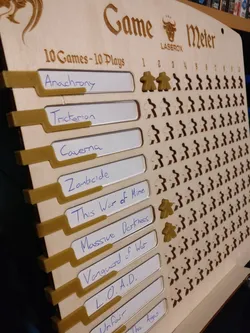 Game Meter
LASERON
10 Games - 10 Plays
Anachrony
Trickerion
Caverna
Zombicide
This War of Mine
Massive Darkness
Vanguard of War
L.O.A.D.
Unfair